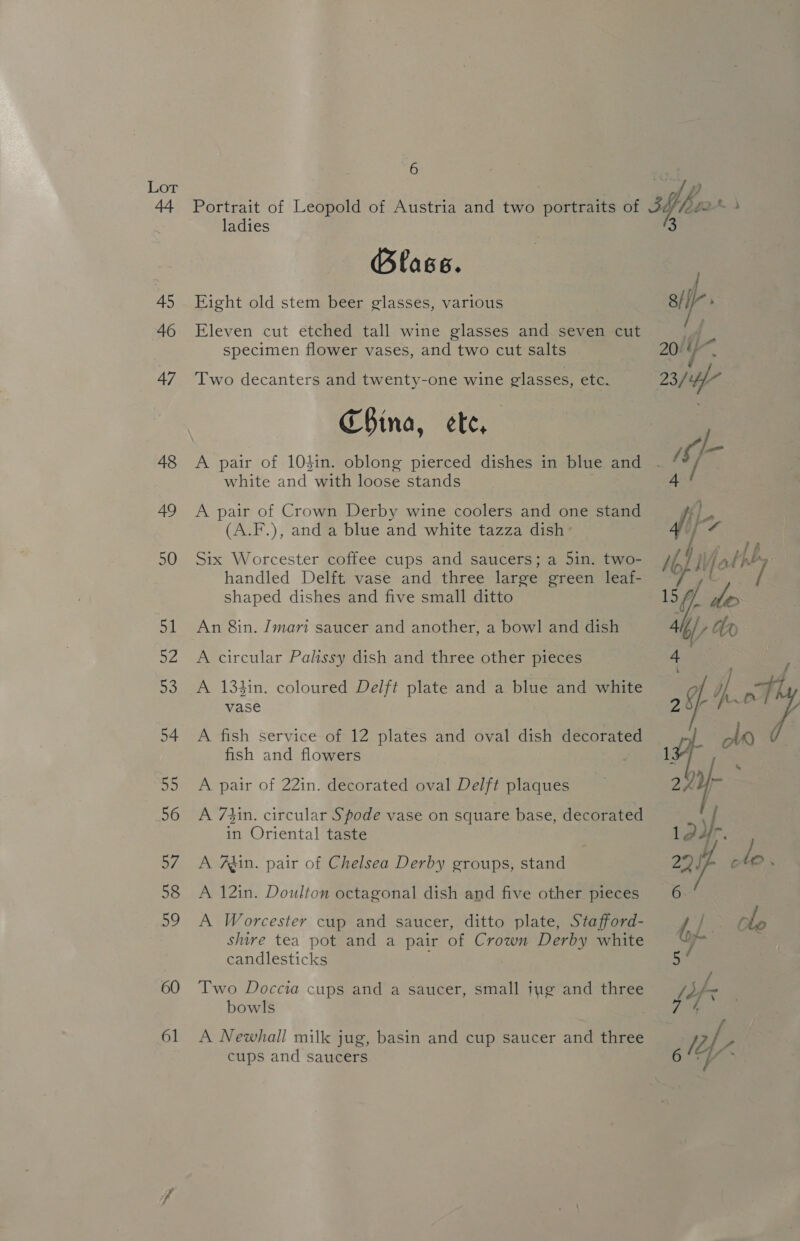 6
Lot
44 Portrait of Leopold of Austria and two portraits of
ladies
Glass.
45 Eight old stem beer glasses, various 8/
46 Eleven cut etched tall wine glasses and seven cut
specimen flower vases, and two cut salts 20
47 Two decanters and twenty-one wine glasses, etc. 23/
China, etc,
48 A pair of 10½in. oblong pierced dishes in blue and
white and with loose stands 4
49 A pair of Crown Derby wine coolers and one stand
(A.F.), and a blue and white tazza dish 4
50 Six Worcester coffee cups and saucers; a 5in. two-
handled Delft vase and three large green leaf-
shaped dishes and five small ditto 15 do
51 An 8in. Imari saucer and another, a bowl and dish 4 do
52 A circular Palissy dish and three other pieces 4
53 A 13½in. coloured Delft plate and a blue and white
vase 2
54 A fish service of 12 plates and oval dish decorated do
fish and flowers 13
55 A pair of 22in. decorated oval Delft plaques 2
56 A 7½in. circular Spode vase on square base, decorated
in Oriental taste 12
57 A 7½in. pair of Chelsea Derby groups, stand 22 do.
58 A 12in. Doulton octagonal dish and five other pieces 6
59 A Worcester cup and saucer, ditto plate, Stafford- do
shire tea pot and a pair of Crown Derby white
candlesticks 5
60 Two Doccia cups and a saucer, small jug and three
bowls 7
61 A Newhall milk jug, basin and cup saucer and three
cups and saucers 6